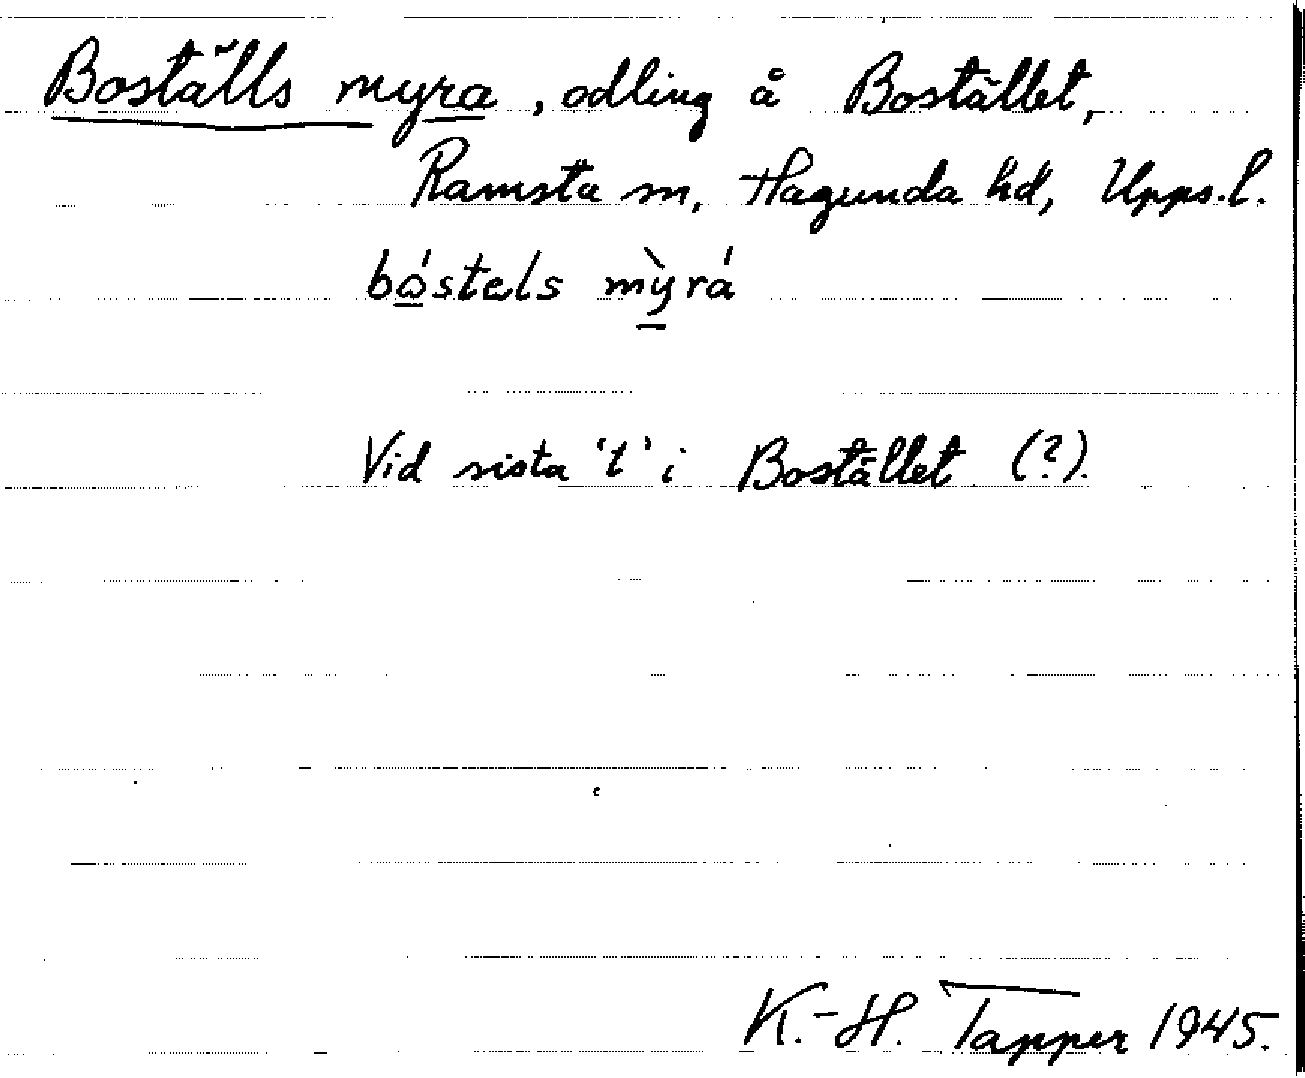 Boställs myra, odling å Bostället,
Ramsta sn, Hagunda hd, Upps.l.
bós̀tels mỳrá
Vid sista 't' i Bostället (?).
K.-H. Tapper 1945.